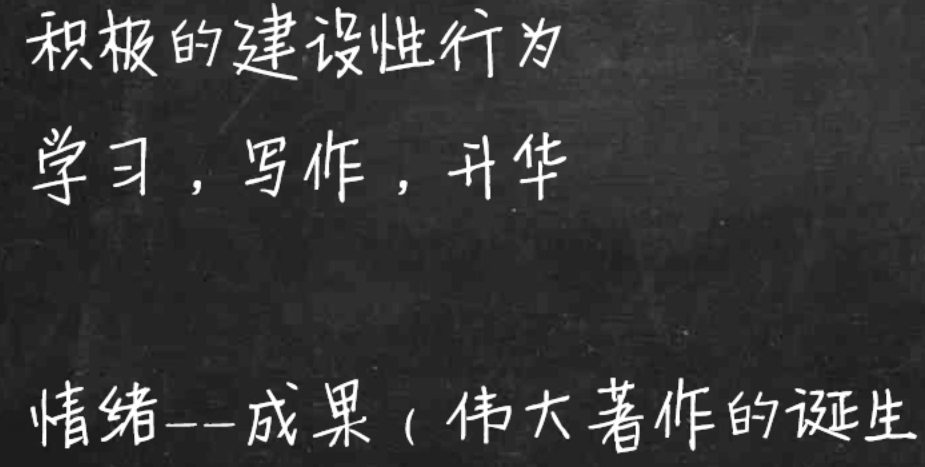 积极的建设性行为
学习，写作，升华
情绪--成果（伟大著作的诞生